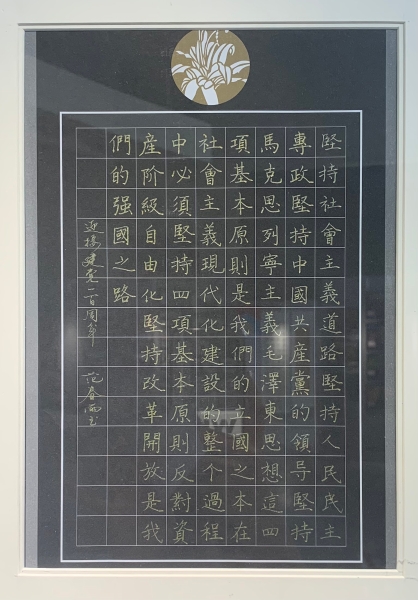 堅持社會主義道路堅持人民民主
專政堅持中國共産黨的領导堅持
馬克思列寧主義毛澤東思想這四
項基本原則是我們的立國之本在
社會主義現代化建設的整个過程
中必須堅持四項基本原則反對資
産阶級自由化堅持改革開放是我
們的强國之路
迎接建党一百周年 范春雨书